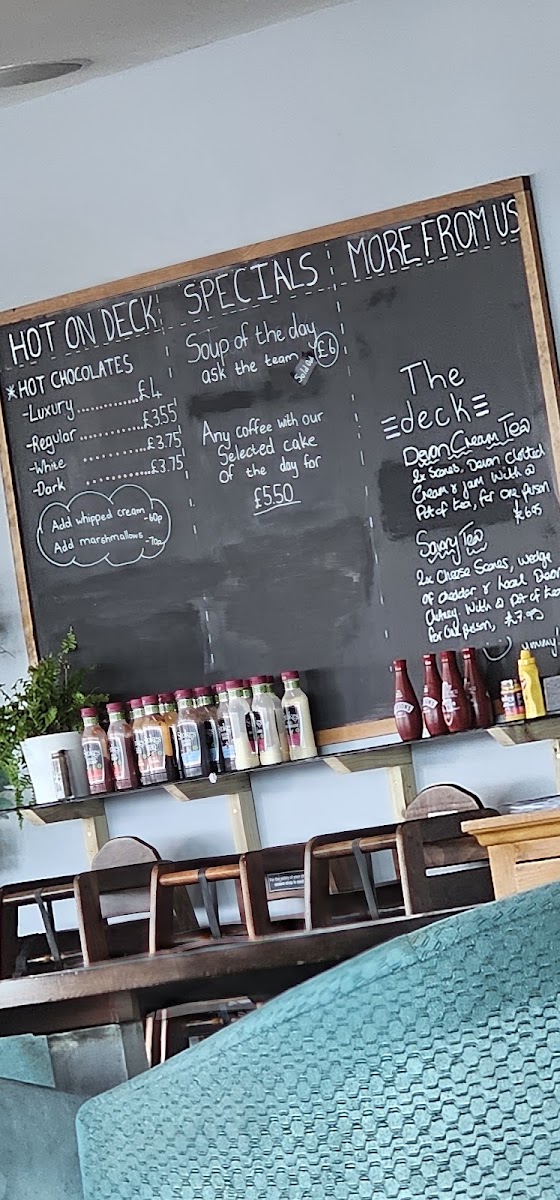 HOT ON DECK
*HOT CHOCOLATES
-Luxury..........£4
-Regular..........£3.55
-White ..........£3.75
-Dark ..........£3.75
Add whipped cream -60p
Add marshmallows -70p
SPECIALS
Soup of the day
ask the team £6
Sold Out
Any coffee with our
Selected cake
of the day for
£5.50
MORE FROM US
The
deck
Devon Cream Tea
2x Scones, Devon Clotted
Cream & jam With a
Pot of tea, for one person
£6.95
Savoury Tea
2x Cheese Scones, wedge
of cheddar & local Devon
Chutney. With a pot of tea
for one person, £7.95